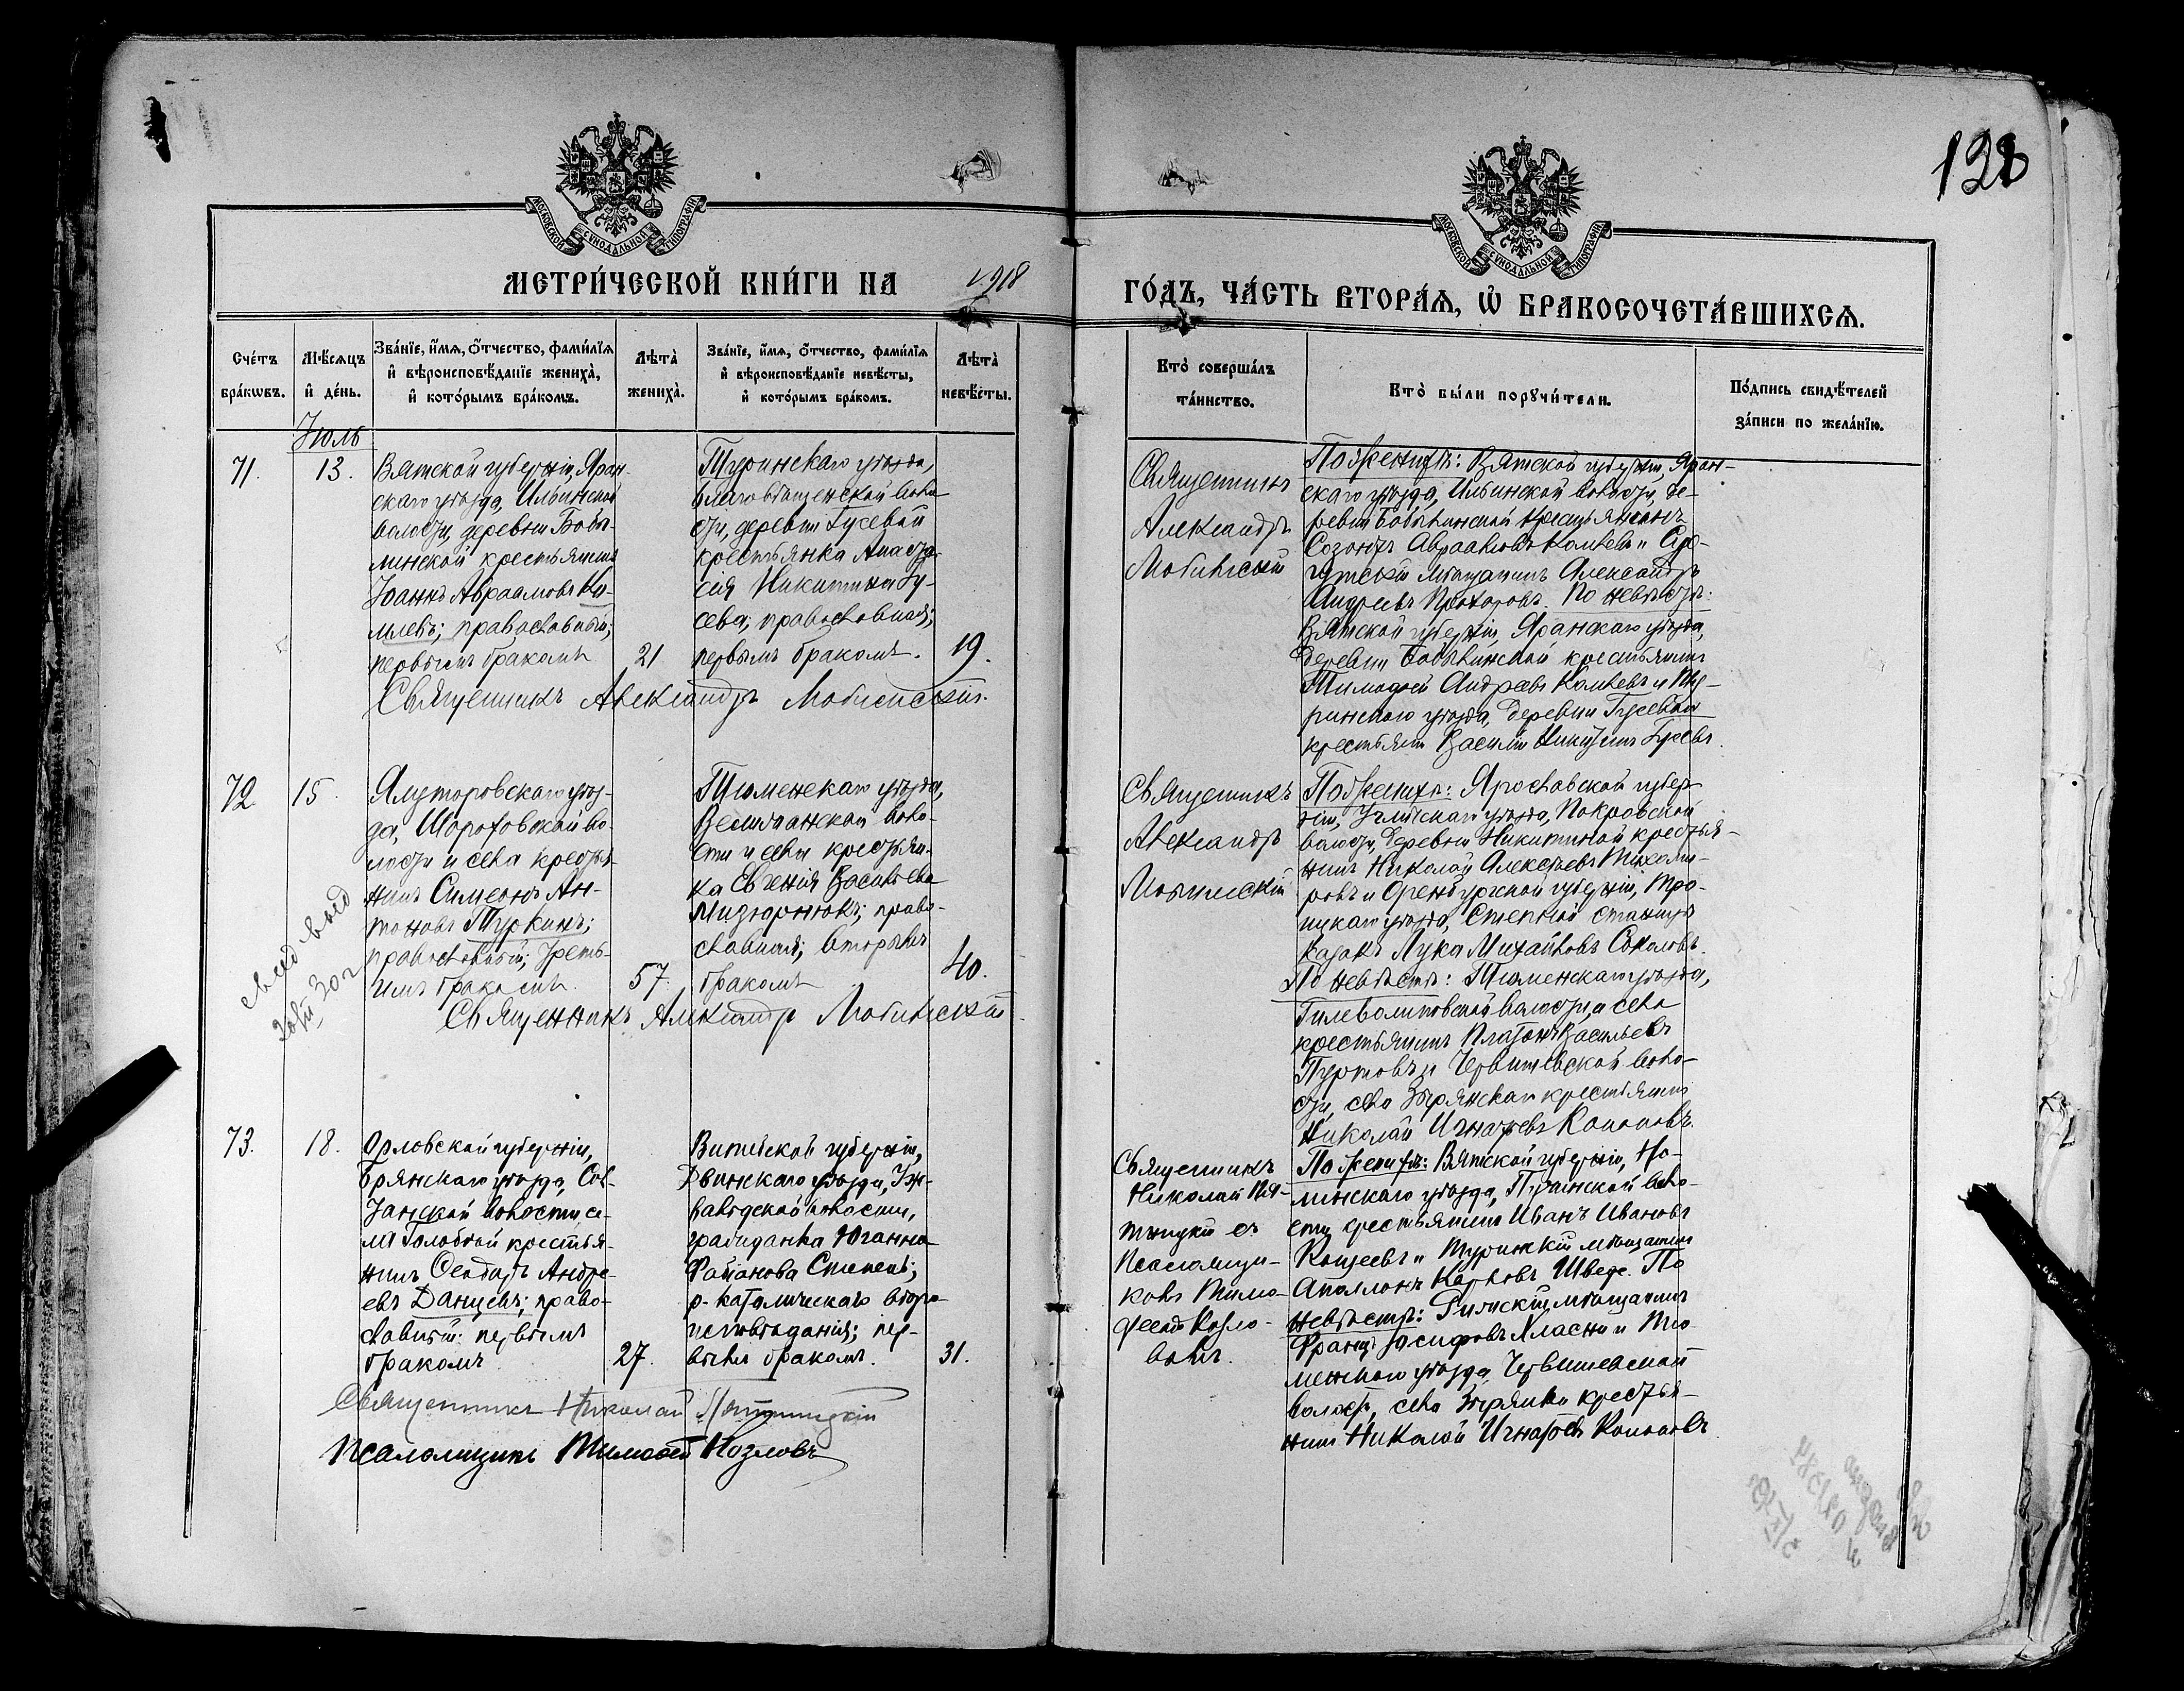 128
МЕТРИ́ЧЕСКОЙ КНИ́ГИ НА 1918
ГО́ДЪ, ЧА́СТЬ ВТОРА́Я, Ѡ҆ БРАКОСОЧЕТА́ВШИХСЯ.
Сче́тъ бра́кѡвъ.
Мѣ́сяцъ и҆ де́нь.
Зва́нїе, и҆́мя, ѻ҆́тчество, фами́лїя
и҆ вѣроисповѣ́данїе жениха̀,
и҆ кото́рымъ бра́комъ.
Лѣта̀ жениха̀.
Зва́нїе, и҆́мя, ѻ҆́тчество, фами́лїя
и҆ вѣроисповѣ́данїе невѣ́сты,
и҆ кото́рымъ бра́комъ.
Лѣта̀ невѣ́сты.
Кто̀ соверша́лъ та́инство.
Кто̀ бы́ли порꙋчи́тели.
По́дпись свидѣ́телей за́писи по жела́нїю.
Іюль
71. 13.
Вятской губерніи, Яран-
скаго уѣзда, Ильинской
волости, деревни Бобы-
линской крестьянинъ
Іоаннъ Авраамовъ Ко-
млевъ; православный;
первымъ бракомъ
21
Туринскаго уѣзда,
Благовѣщенской воло-
сти, деревни Гусевой
крестьянка Анаста-
сія Никитина Гу-
сева; православная;
первымъ бракомъ.
19.
Священникъ Александръ
Священникъ
Александръ
По женихѣ: Вятской губерніи, Яран-
скаго уѣзда, Ильинской волости, де-
ревни Бобылинской крестьянинъ
Созонтъ Авраамовъ Комлевъ и
мѣщанинъ Александръ
Андреевъ Прохоровъ. По невѣстѣ:
Вятской губерніи, Яранскаго уѣзда,
деревни Бобылинской крестьянинъ
Тимофей Андреевъ Комлевъ и Ту-
ринскаго уѣзда, деревни Гусевой
крестьянинъ Василій Никитинъ Гусевъ.
72 15.
Ялуторовскаго уѣз-
да, Шороховской во-
лости и села кресть-
нинъ Симеонъ Ан-
тоновъ Туркинъ;
православный; треть-
имъ бракомъ.
57.
Тюменскаго уѣзда,
воло-
сти и села крестьян-
ка Евгенія Васильева
право-
славная; вторымъ
бракомъ
40.
Священникъ Александръ
Священникъ
Александръ
По женихѣ: Ярославской губер-
ніи, Угличскаго уѣзда, Покровской
волости, деревни Никитиной крестья-
нинъ Николай Алексѣевъ Тихоми-
ровъ и Оренбургской губерніи, Тро-
ицкаго уѣзда, Степной станицы
казакъ Лука Михайловъ Соколовъ.
По невѣстѣ: Тюменскаго уѣзда,
волости и села
крестьянинъ Платонъ Васильевъ
и Червишевской воло-
сти, села Зырянскаго крестьянинъ
Николай Игнатьевъ Кононовъ.
73. 18.
Орловской губерніи,
Брянскаго уѣзда,
волости се-
ла крестья-
нинъ Ѳеодоръ Андре-
евъ Данцевъ; право-
славный: первымъ
бракомъ
27.
Витебской губерніи,
Двинскаго уѣзда,
волости,
гражданка Юганна
р.-католическаго вѣро-
исповѣданія; пер-
вымъ бракомъ.
31.
Священникъ Николай
Псаломщикъ Тимофей Козловъ
Священникъ
Николай
съ
Псаломщи-
комъ Тимо-
феемъ Козло-
вымъ.
По женихѣ: Вятской губерніи, Но-
линскаго уѣзда, воло-
сти крестьянинъ Иванъ Ивановъ
Кощеевъ и Туринскій мѣщанинъ
Аполлонъ Карповъ Шведе. По
невѣстѣ: мѣщанинъ
Францъ Іосифовъ и Тю-
менскаго уѣзда Червишевской
волости, села крестья-
нинъ Николай Игнатьевъ Кононовъ.